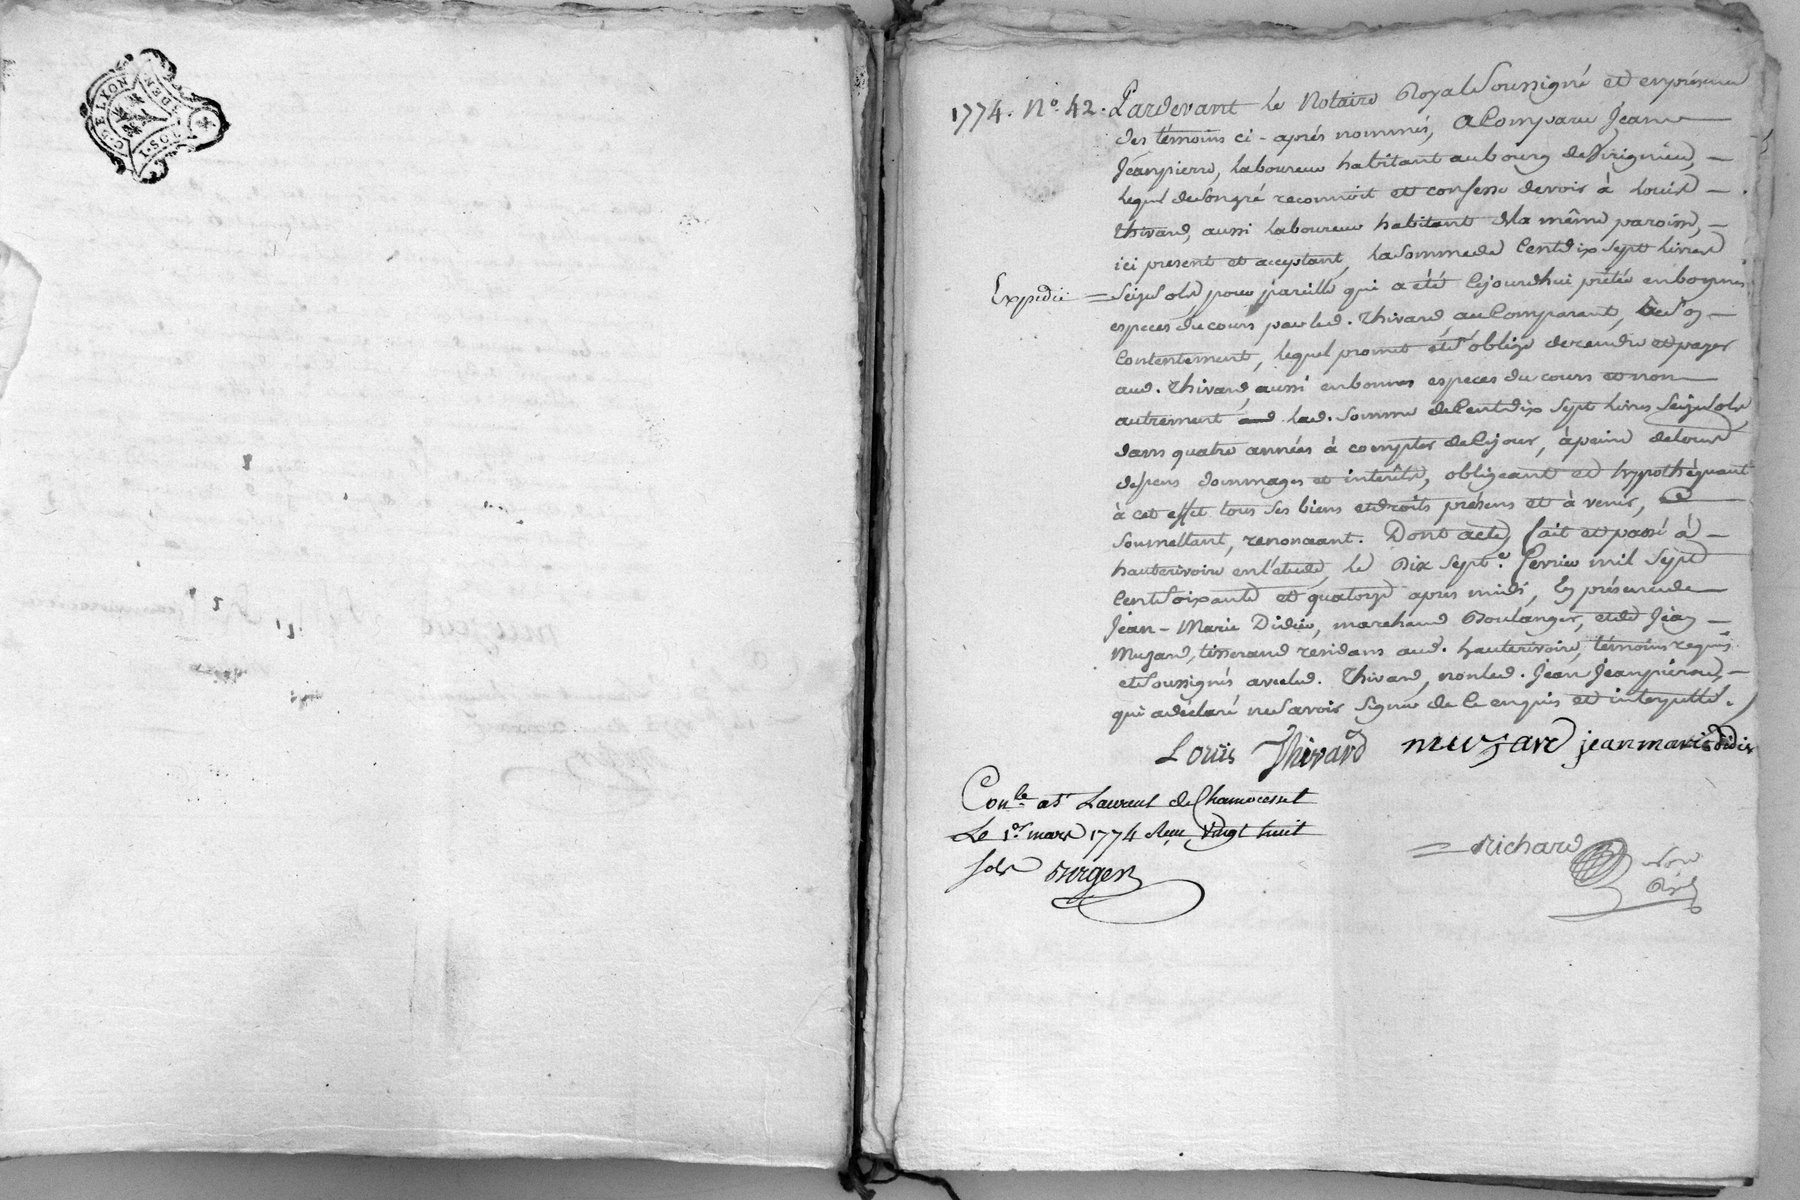 GE. DE LYON
I. SOL. 10. S DEN
1774. N.º 42. Pardevant le Notaire Royal Soussigné et en présence
des témoins ci-aprés nommés, a Comparu Jean
Jeanpierre, laboureur habitant au bourg de Virignieu,
lequel de Son gré reconnoit et confesse devoir à Louis
Thivard, aussi laboureur habitant de la même paroisse,
ici present et acceptant, la Somme de Cent dix Sept livres
Expedié = Seize Sols pour pareille qui a été Cejourdhui prêtée en bonnes
especes du cours par led. Thivard, au Comparant, à Son
Contentement, lequel promet et S'oblige de rendre et payer
aud. Thivard, aussi en bonnes especes du cours et non
autrement lad. Somme de Cent dix Sept livres Seize Sols
dans quatre années à compter de Ce jour, à peine de tous
depens dommages et intérêts, obligeant et hypothéquant
à cet effet tous Ses biens et droits présens et à venir,
Soumettant, renonceant. Dont acte, fait et passé à
hauterivoire en l'etude, le Dix Sept.e fevrier mil Sept
Cent Soixante et quatorze après midi, En présence de
Jean-Marie Didier, marchand Boulanger, et de Jean
Muzard, tisserand residans aud. hauterivoire, témoins requis
et Soussignés avec led. Thivard, non led. Jean Jeanpierre,
qui a déclaré ne Savoir Signer de Ce enquis et interpellé.
Louis Thivard muzard jean marie didier
Con.le at Laurent de Chamousset
Le 1.er mars 1774 Reçu Vingt huit
sols Surgen
= Richard